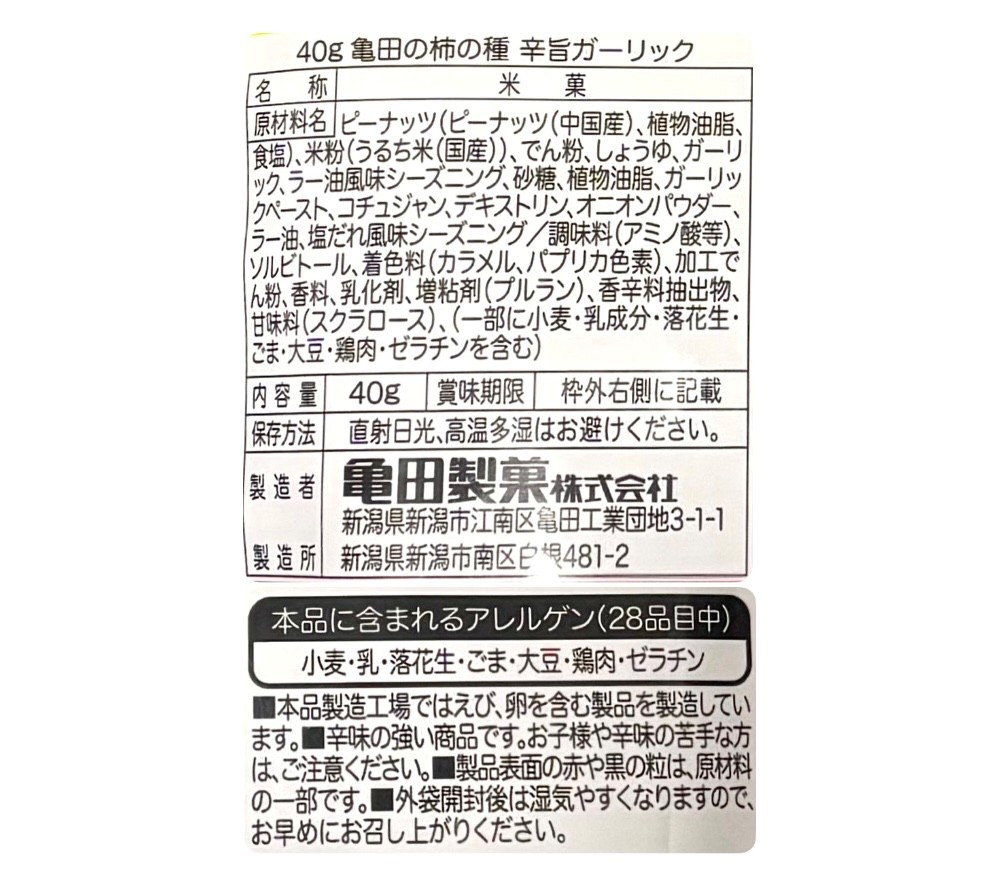 40g 亀田の柿の種 辛旨ガーリック
名称 米菓
原材料名 ピーナッツ(ピーナッツ(中国産)、植物油脂、
食塩)、米粉(うるち米(国産))、でん粉、しょうゆ、ガーリ
ック、ラー油風味シーズニング、砂糖、植物油脂、ガーリッ
クペースト、コチュジャン、デキストリン、オニオンパウダー、
ラー油、塩だれ風味シーズニング/調味料(アミノ酸等)、
ソルビトール、着色料(カラメル、パプリカ色素)、加工で
ん粉、香料、乳化剤、増粘剤(プルラン)、香辛料抽出物、
甘味料(スクラロース)、(一部に小麦・乳成分・落花生・
ごま・大豆・鶏肉・ゼラチンを含む)
内容量 40g 賞味期限 枠外右側に記載
保存方法 直射日光、高温多湿はお避けください。
製造者 亀田製菓株式会社
新潟県新潟市江南区亀田工業団地3-1-1
製造所 新潟県新潟市南区白根481-2
本品に含まれるアレルゲン(28品目中)
小麦・乳・落花生・ごま・大豆・鶏肉・ゼラチン
■本品製造工場ではえび、卵を含む製品を製造してい
ます。■辛味の強い商品です。お子様や辛味の苦手な方
は、ご注意ください。■製品表面の赤や黒の粒は、原材料
の一部です。■外袋開封後は湿気やすくなりますので、
お早めにお召し上がりください。